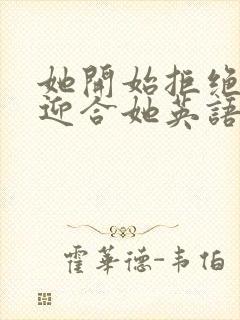 她開始拒絕
迎合她英語
霍華德-韦伯